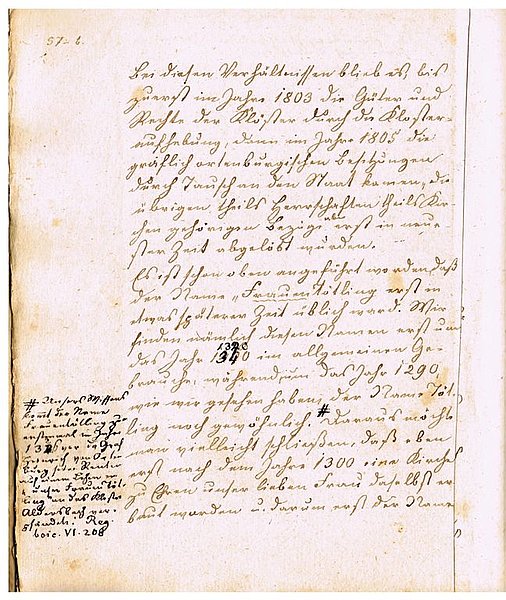 57. b.
Bei diesen Verhältnissen blieb es, bis
zuerst im Jahre 1803 die Güter und
Rechte der Klöster durch die Kloster-
aufhebung, dann im Jahre 1805 die
gräflich ortenburgischen Besitzungen
durch Tausch an den Staat kamen, die
übrigen theils Herrschaften theils Kir-
chen gehörigen Bezüge aber erst in neue-
ster Zeit abgelöst wurden.
Es ist schon oben angeführt worden, daß
der Name „Frauentötling erst in
etwas späterer Zeit üblich ward. Wir
finden nämlich diesen Namen erst um
das Jahr 1340 im allgemeinen Ge-
brauche, während um das Jahr 1290,
wie wir gesehen haben, der Name Töt-
ling noch gewöhnlich. # Daraus möchte
man vielleicht schließen, daß eben
erst nach dem Jahre 1300 eine Kirche
zu Ehren unser lieben Frau daselbst er-
baut worden u. darum erst der Name
# Unseres Wissens
kömt der Name
Frauentötling zum
erstenmal im Jahre
vor, da Graf
von Orten-
burg seine
Lehen
unser Frauen Töt-
ling an das Kloster
Aldersbach ver-
Reg.
boic. VI. 208